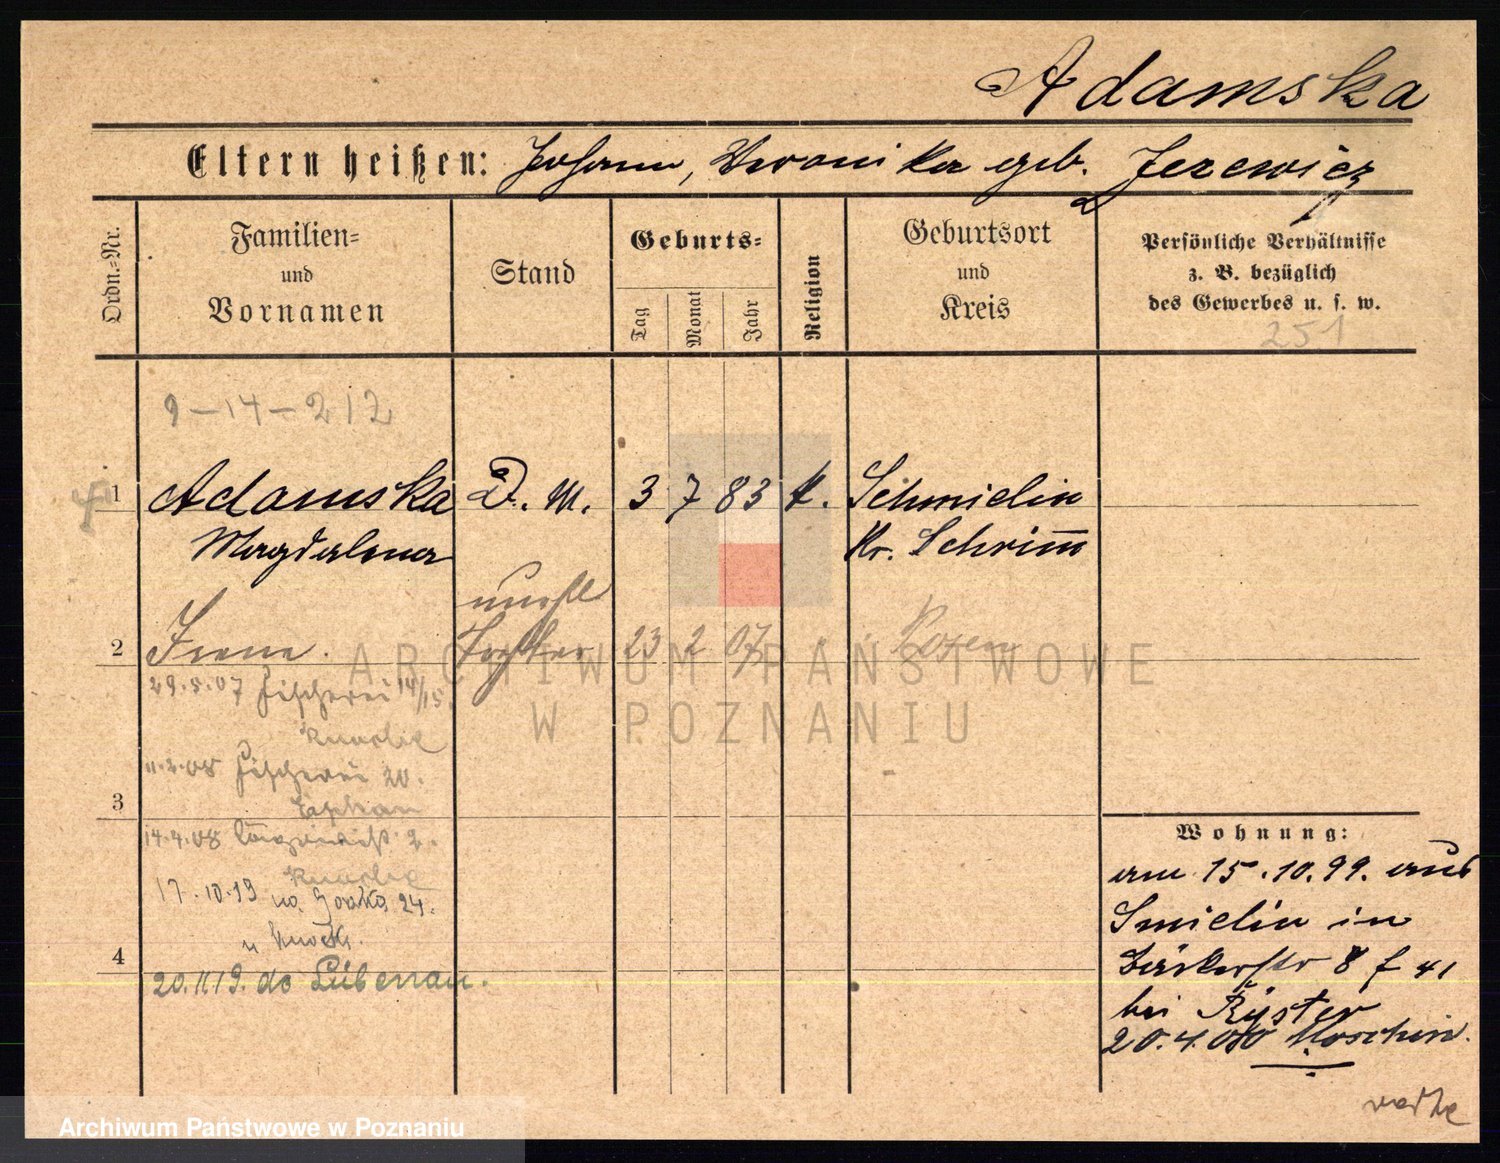 Adamska
Eltern heißen: Johann, Weronika geb. Jezewicz
Ordn.-Nr.
Familien-
und
Vornamen
Stand
Geburts-
Tag
Monat
Jahr
Religion
Geburtsort
und
Kreis
Persönliche Verhältnisse
z. B. bezüglich
des Gewerbes u. s. w.
251
9-14-212
1 Adamska D. M. 3 7 83 k. Schmielin
Magdalena Kr. Schrimm
unehl
2 Irene. Tochter 23 2 07 Posen
29.5.07 Fischerei 14/15.
11.2.08 Fischerei 20.
3
14.4.08 2.
17.10.19 Gorka 24.
4
20.11.19. do Lübenau.
Wohnung:
am 15.10.99. aus
Smielin in
Bäckerstr 8 f 41
bei Ryster
20.4.00 Moschin.
ARCHIWUM PAŃSTWOWE
W POZNANIU
Archiwum Państwowe w Poznaniu